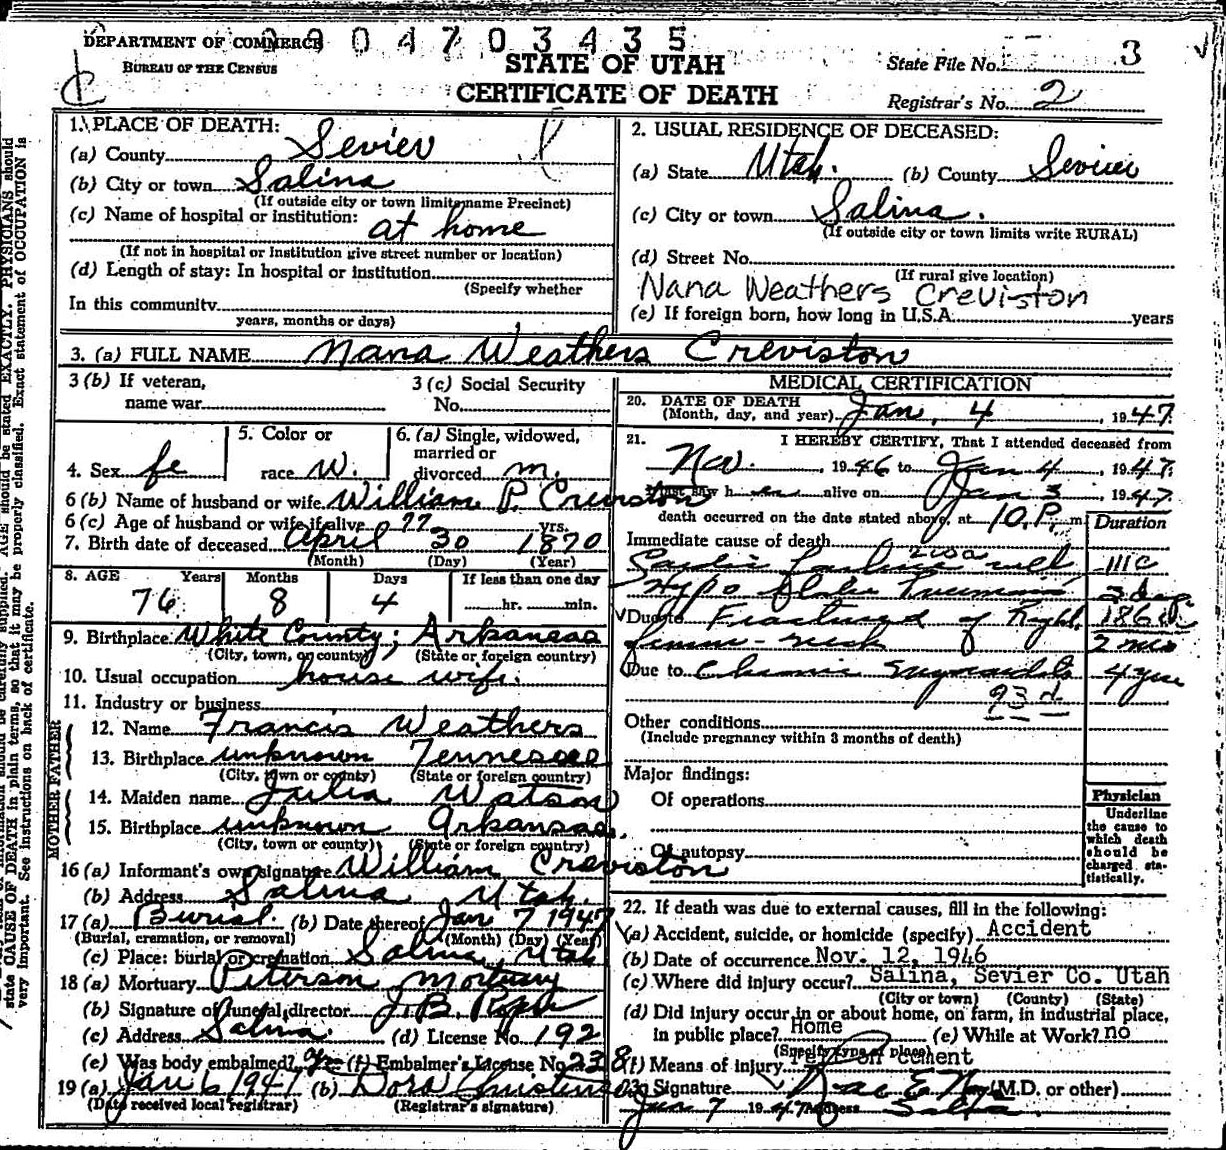 DEPARTMENT OF COMMERCE
BUREAU OF THE CENSUS
004703435
STATE OF UTAH
CERTIFICATE OF DEATH
State File No. 3
Registrar's No. 2
1. PLACE OF DEATH:
(a) County Sevier
(b) City or town Salina
(If outside city or town limits name Precinct)
(c) Name of hospital or institution:
at home
(If not in hospital or institution give street number or location)
(d) Length of stay: In hospital or institution
(Specify whether
In this community
years, months or days)
2. USUAL RESIDENCE OF DECEASED:
(a) State Utah. (b) County Sevier
(c) City or town Salina.
(If outside city or town limits write RURAL)
(d) Street No.
(If rural give location)
Nana Weathers Creviston
(e) If foreign born, how long in U.S.A. years
3. (a) FULL NAME Nana Weathers Creviston
3 (b) If veteran,
name war
3 (c) Social Security
No.
4. Sex fe
5. Color or
race W.
6. (a) Single, widowed,
married or
divorced m.
6 (b) Name of husband or wife William P. Creviston
6 (c) Age of husband or wife if alive 77 yrs.
7. Birth date of deceased April 30 1870
(Month) (Day) (Year)
8. AGE Years Months Days If less than one day
76 8 4 hr. min.
9. Birthplace White County; Arkansas
(City, town, or county) (State or foreign country)
10. Usual occupation house wife.
11. Industry or business
FATHER
12. Name Francis Weathers
13. Birthplace unknown Tennessee
(City, town or county) (State or foreign country)
MOTHER
14. Maiden name Julia Watson
15. Birthplace unknown Arkansas.
(City, town or county) (State or foreign country)
16 (a) Informant's own signature William Creviston
(b) Address Salina Utah.
17 (a) Burial. (b) Date thereof Jan 7 1947
(Burial, cremation, or removal) (Month) (Day) (Year)
(c) Place: burial or cremation Salina, Utah
18 (a) Mortuary Peterson Mortuary
(b) Signature of funeral director J. B.
(c) Address Salina. (d) License No. 192
(e) Was body embalmed? yes (f) Embalmer's License No. 238
19 (a) Jan 6 1947 (b) Dora
(Date received local registrar) (Registrar's signature)
MEDICAL CERTIFICATION
20. DATE OF DEATH
(Month, day, and year) Jan, 4, 1947
21. I HEREBY CERTIFY, That I attended deceased from
Nov. , 1946 to Jan 4, 1947.
I last saw her alive on Jan 3 1947
death occurred on the date stated above, at 10. P. m
Duration
Immediate cause of death
3 days
Due to Fractured of Right 186
femur - neck 2 mo
Due to Chronic 4 yrs
93 d
Other conditions
(Include pregnancy within 3 months of death)
Major findings:
Of operations
Of autopsy
Physician
Underline
the cause to
which death
should be
charged sta-
tistically.
22. If death was due to external causes, fill in the following:
(a) Accident, suicide, or homicide (specify) Accident
(b) Date of occurrence Nov. 12, 1946
(c) Where did injury occur? Salina, Sevier Co. Utah
(City or town) (County) (State)
(d) Did injury occur in or about home, on farm, in industrial place,
in public place? Home (e) While at Work? no
(Specify type of place)
(f) Means of injury Fell on cement
23. Signature Rae E. (M.D. or other)
Jan 7 1947 Address
state CAUSE OF DEATH in plain terms, so that it may be properly classified. Exact statement of OCCUPATION is
very important. See instructions on back of certificate.